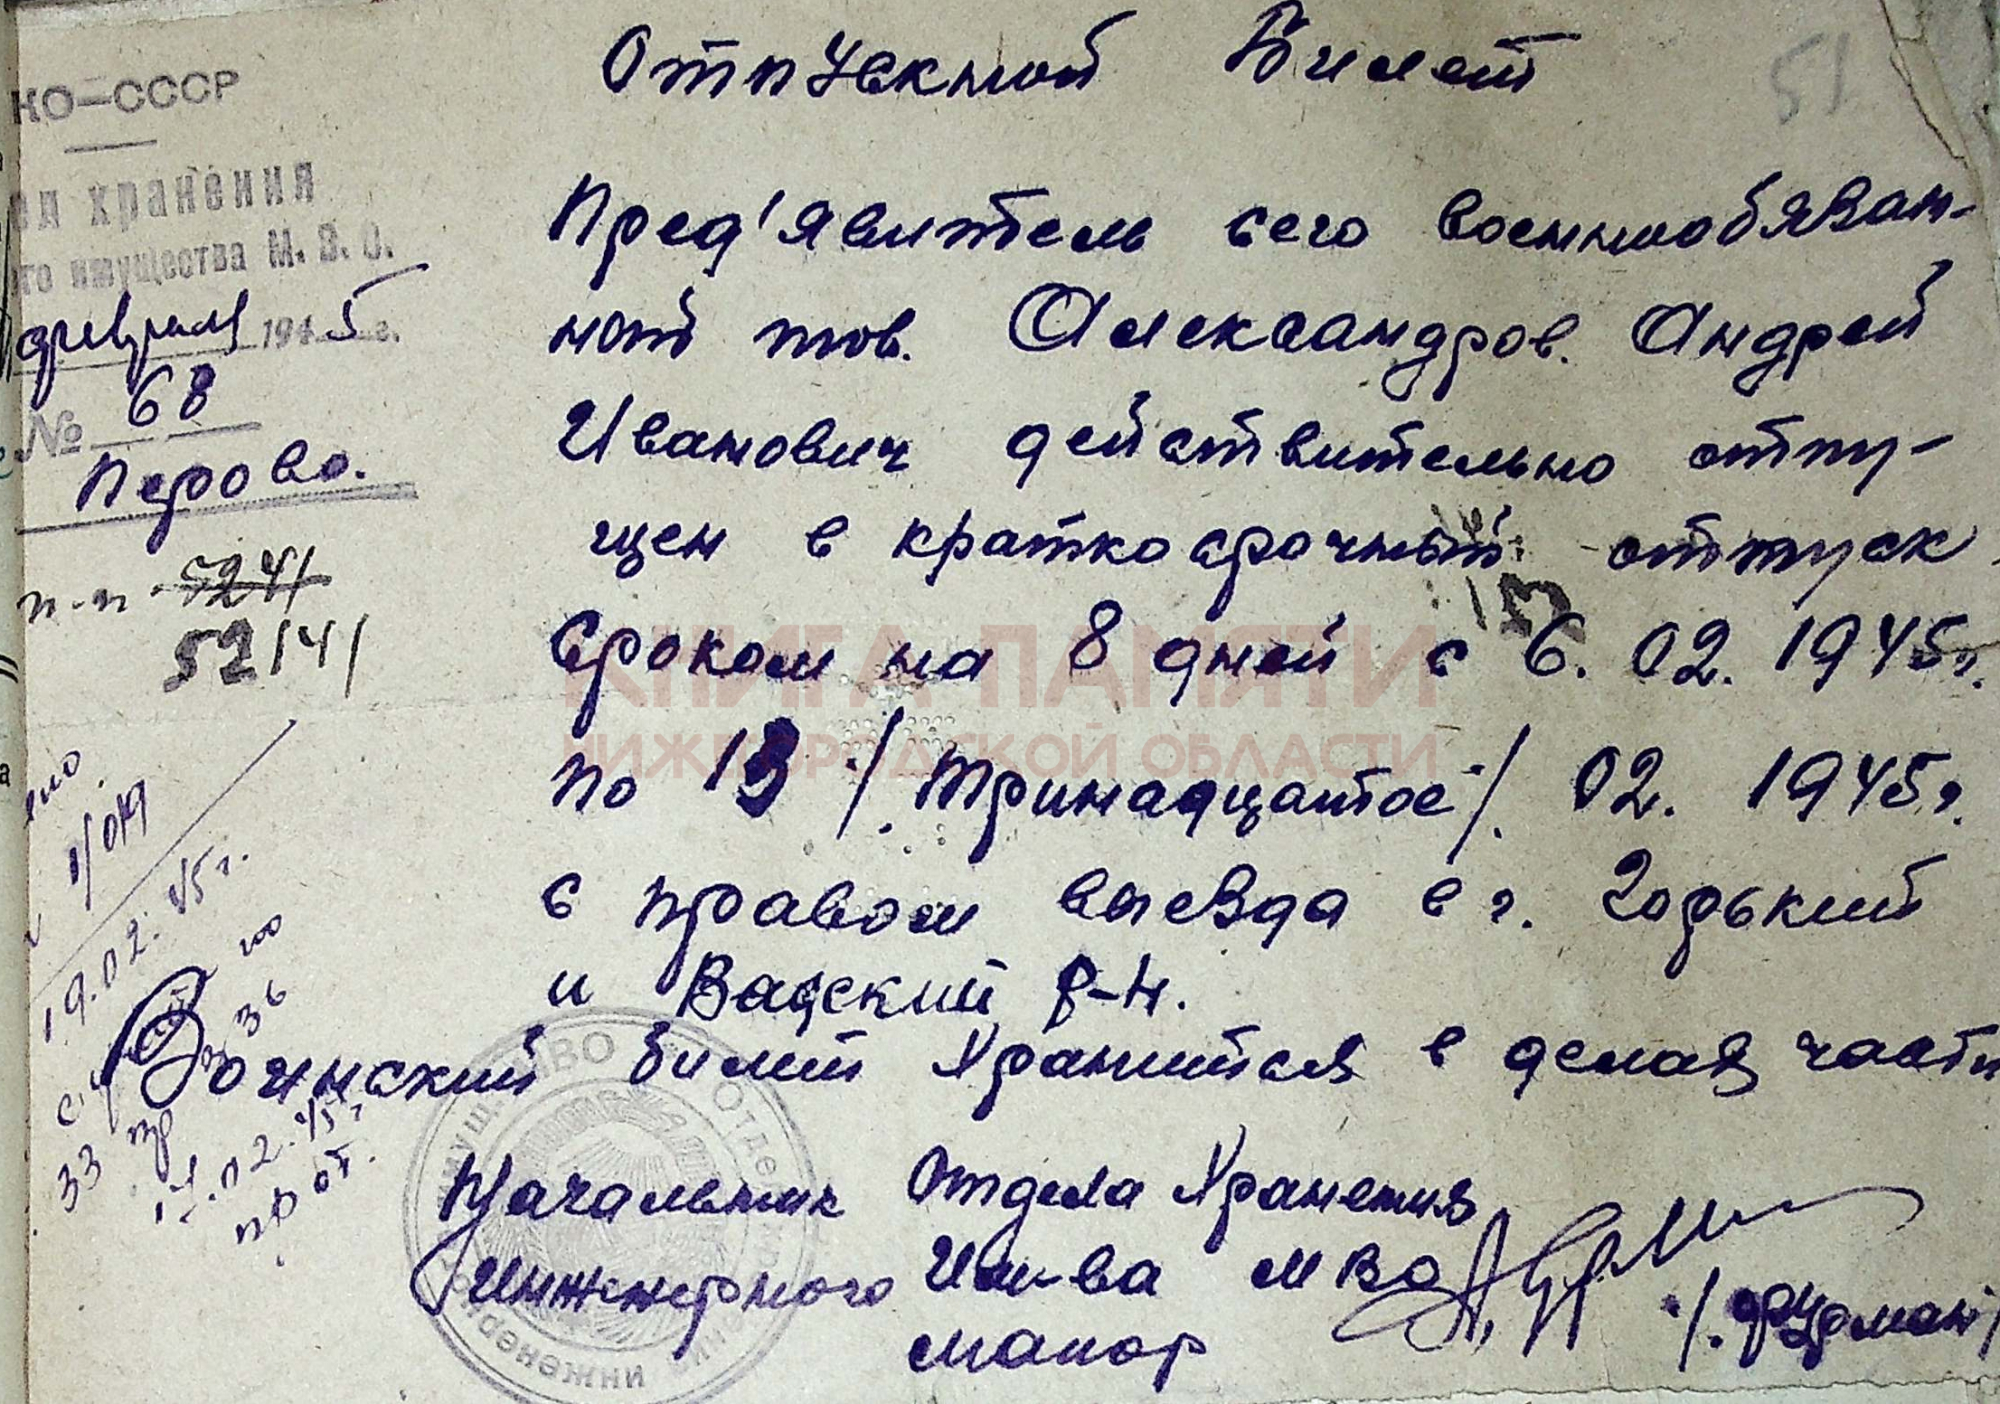 Отпускной Билет
51
НКО-СССР
хранения
имущества М.В.О.
февраля 1945 г.
№ 68
Перово.
п-п 5241
52141
Пред'явитель сего военнообязан-
ной тов. Александров. Андрей
Иванович действительно отпу-
щен в краткосрочный отпуск
сроком на 8 дней с 6. 02. 1945г.
по 13 /. Тринадцатое /. 02. 1945г.
с правом выезда в г. Горький
и Вадский р-н.
Воинский билет хранится в делах части
Начальник Отдела Хранения
Инженерного Им-ва МВО
маиор
КНИГА ПАМЯТИ
НИЖЕГОРОДСКОЙ ОБЛАСТИ
19.02.45г.